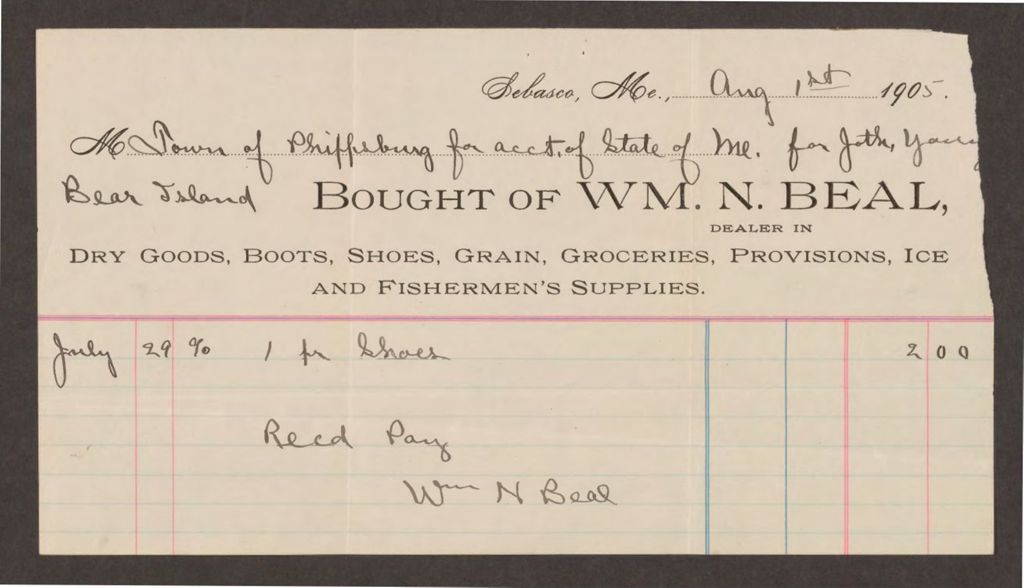 Sebasco, Me., Aug 1st 1905.
M Town of Phippsburg for acct. of State of Me. for Joth,
Bear Island BOUGHT OF WM. N. BEAL,
DEALER IN
DRY GOODS, BOOTS, SHOES, GRAIN, GROCERIES, PROVISIONS, ICE
AND FISHERMEN'S SUPPLIES.
July 29 % 1 pr Shoes 2 00
Recd Pay
Wm N Beal